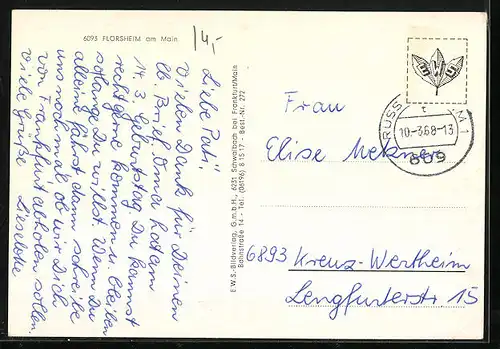 6093 FLÖRSHEIM am Main
14,-
Liebe Pati!
Vielen Dank für Deinen
lb. Brief. Oma hat am
14. 3. Geburtstag. Du kannst
recht gerne kommen u. bleiben
solange Du willst. Wenn Du
alleine fährst dann schreibe
uns nochmal ob wir Dich
von Frankfurt abholen sollen
Viele Grüße Lieselotte
E.W.S.-Bildverlag, G.m.b.H., 6231 Schwalbach bei Frankfurt/Main
Bahnstraße 14 - Tel. (06196) 8 15 17 - Best.-Nr. 272
E W S
RUSS
M 1
10.-3.68-13
609
Frau
Elise Mekner
6893 Kreuz-Wertheim
Lengfurterstr 15